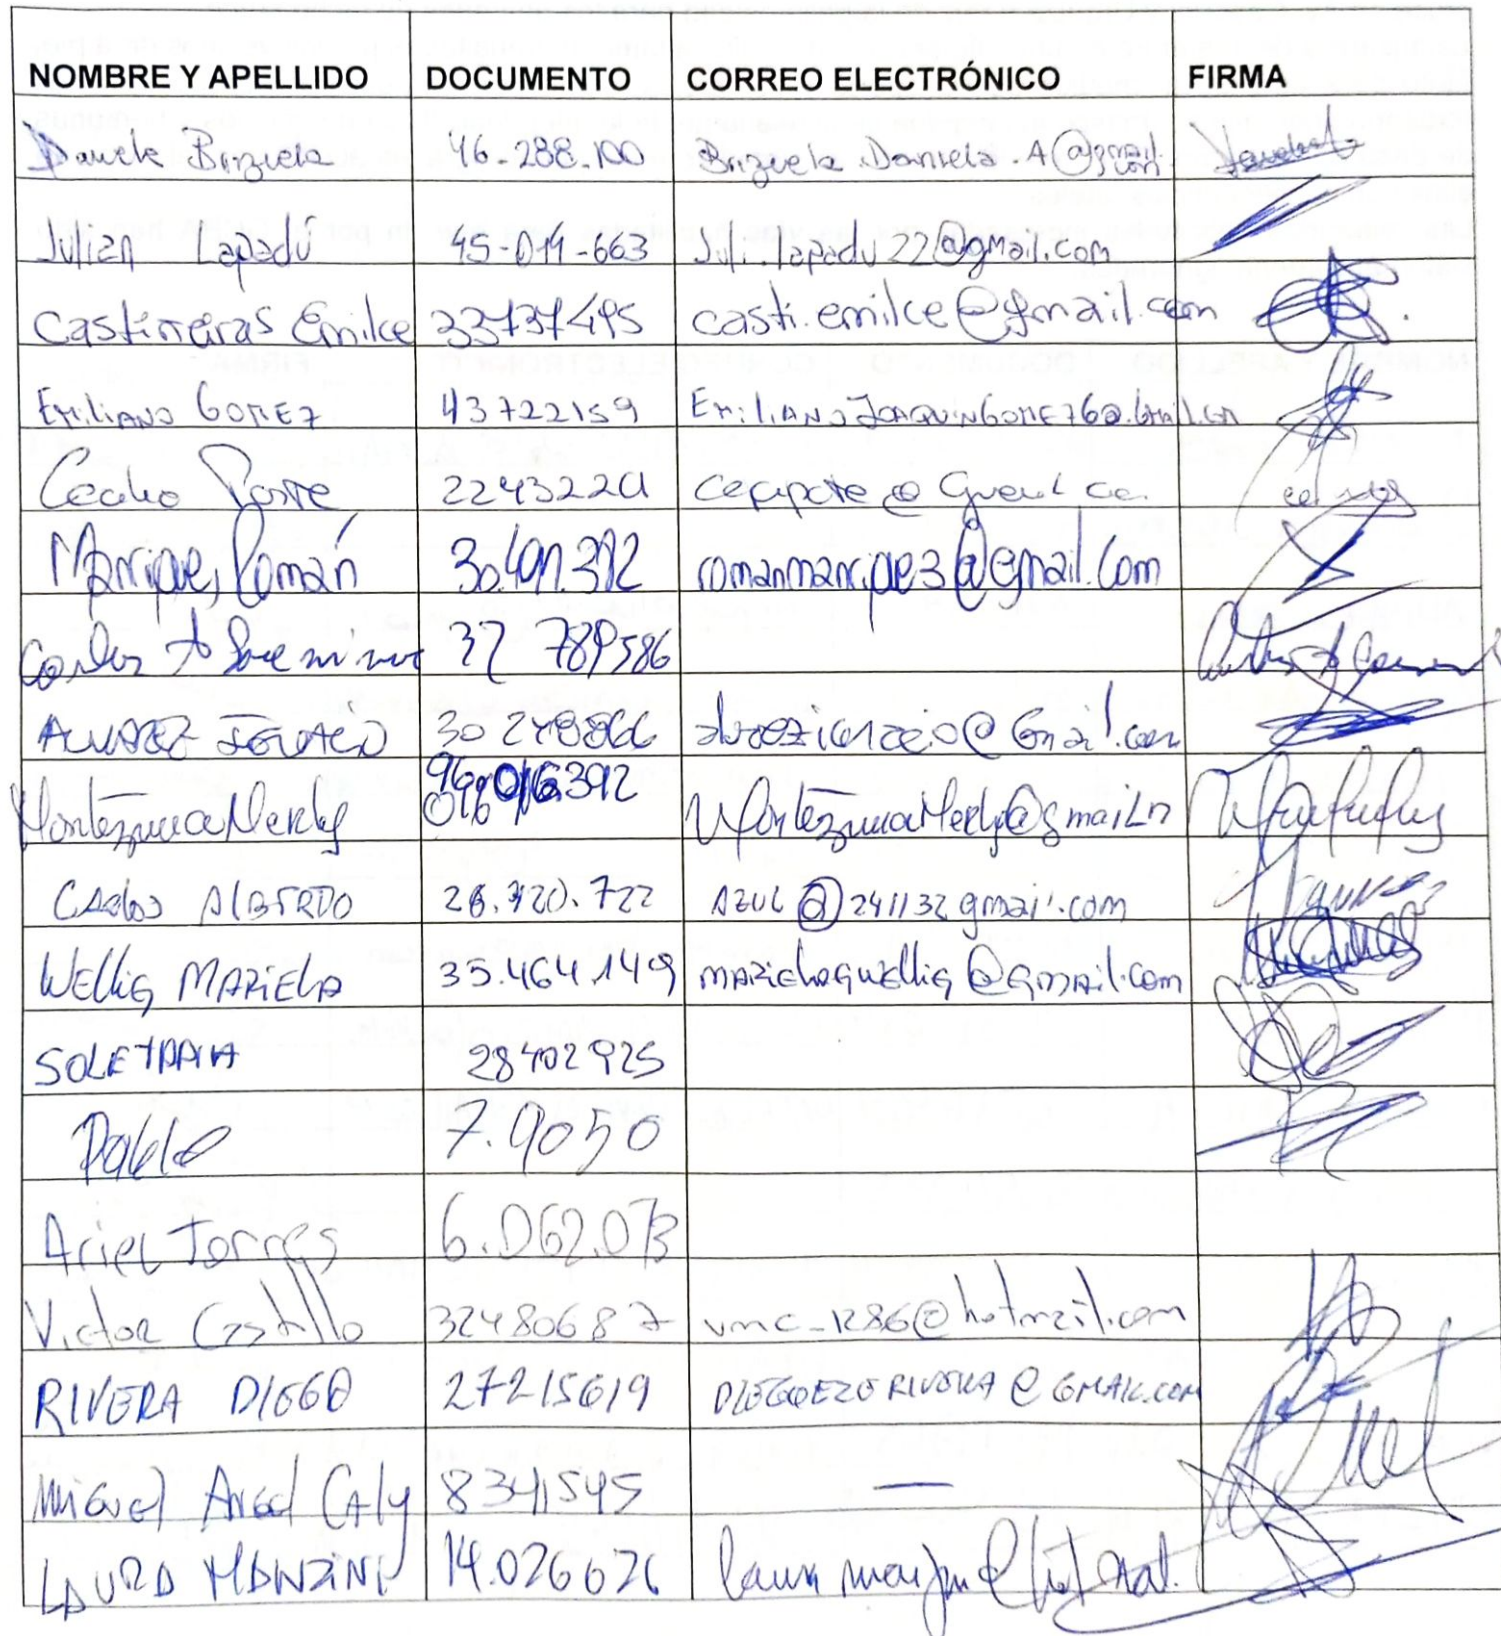 NOMBRE Y APELLIDO DOCUMENTO CORREO ELECTRÓNICO FIRMA
Daniela Brizuela 46-288.100 Brizuela.Daniela.A@gmail.com
Julian Lapadú 45-019-663 Juli.lapadu22@gmail.com
Castineiras Emilce 33737495 casti.emilce@gmail.com
EMILIANO GOMEZ 43722159 EMILIANOJOAQUINGOMEZ6@.GMAIL.COM
22432201
Manrique, Román 30.401.392 romanmanrique3@gmail.com
37 789586
ALVAREZ IGNACIO 30248866
Montezuma Merly 96.016.392
CARLOS ALBERTO 26.320.722 AZUL@241132gmail.com
WELLIG MARIELA 35.464.149 MARIELAGWELLIG@GMAIL.COM
28402925
Pablo 7.9050
Ariel Torres 6.062.073
Victor Castillo 32480687 vmc_1286@hotmail.com
RIVERA DIEGO 27215619 DIEGOEZERIVERA@GMAIL.COM
Miguel Angel Caly 8341545 —
LAURA MANZINI 14.026626